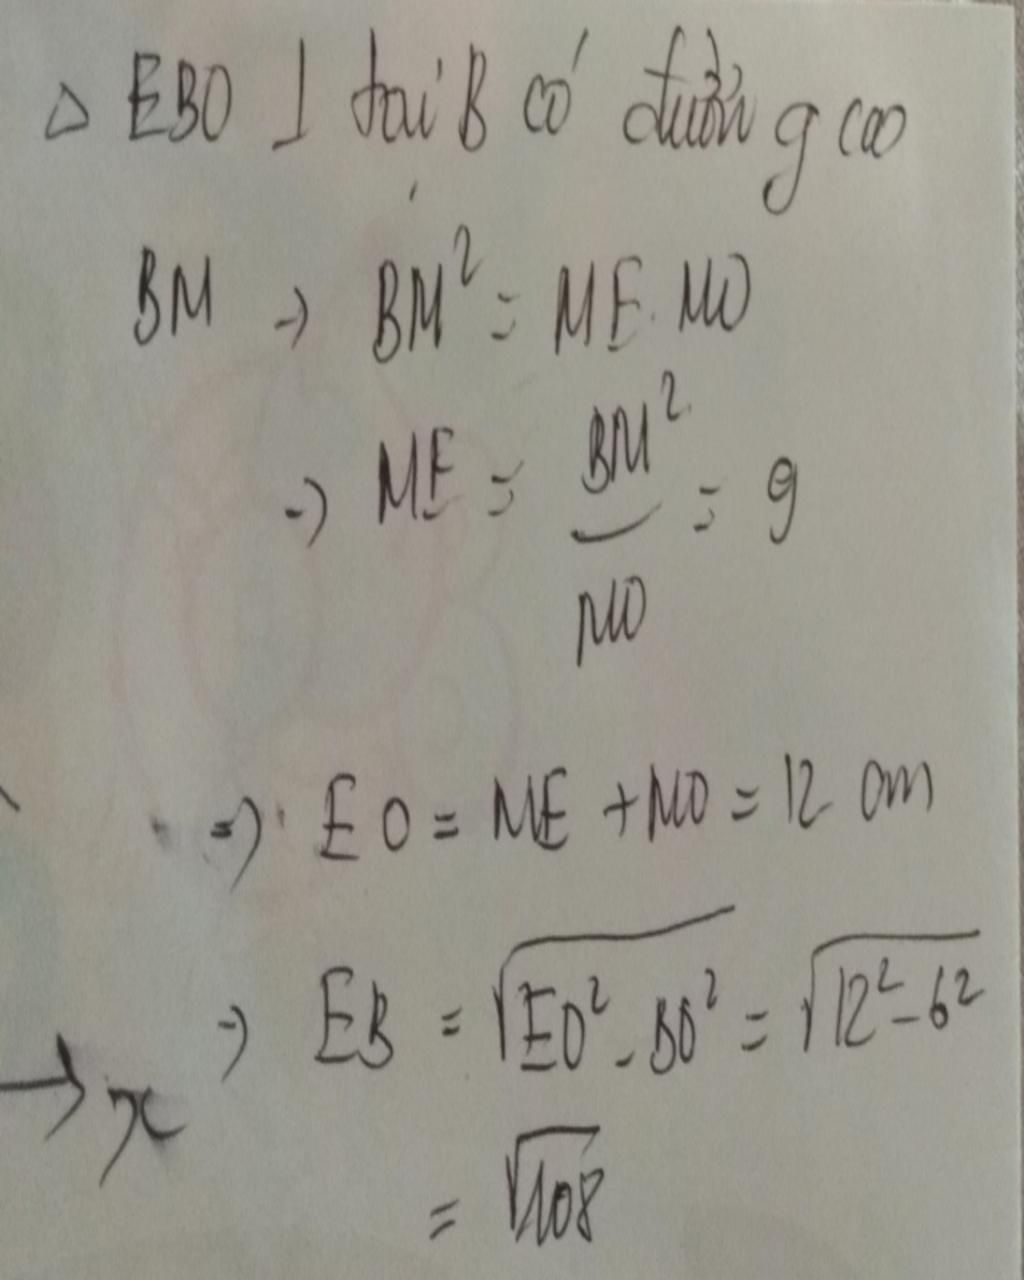 △ EBO ⊥ tại B có đường cao
BM → BM² = ME. MO
→) ME = BM²/MO = 9
=) EO = ME + MO = 12 cm
=) EB = √(EO² - BO²) = √(12² - 6²)
x
= √108